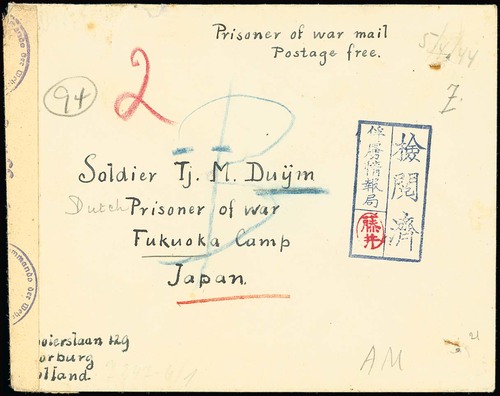 Prisoner of war mail
Postage free.
5/4/44
Z.
94
2
B
Soldier Tj. M. Duÿm
Dutch Prisoner of war
Fukuoka Camp
Japan.
俘虜情報局
檢閱濟
藤井
oierslaan 129
orburg
olland.
AM
21